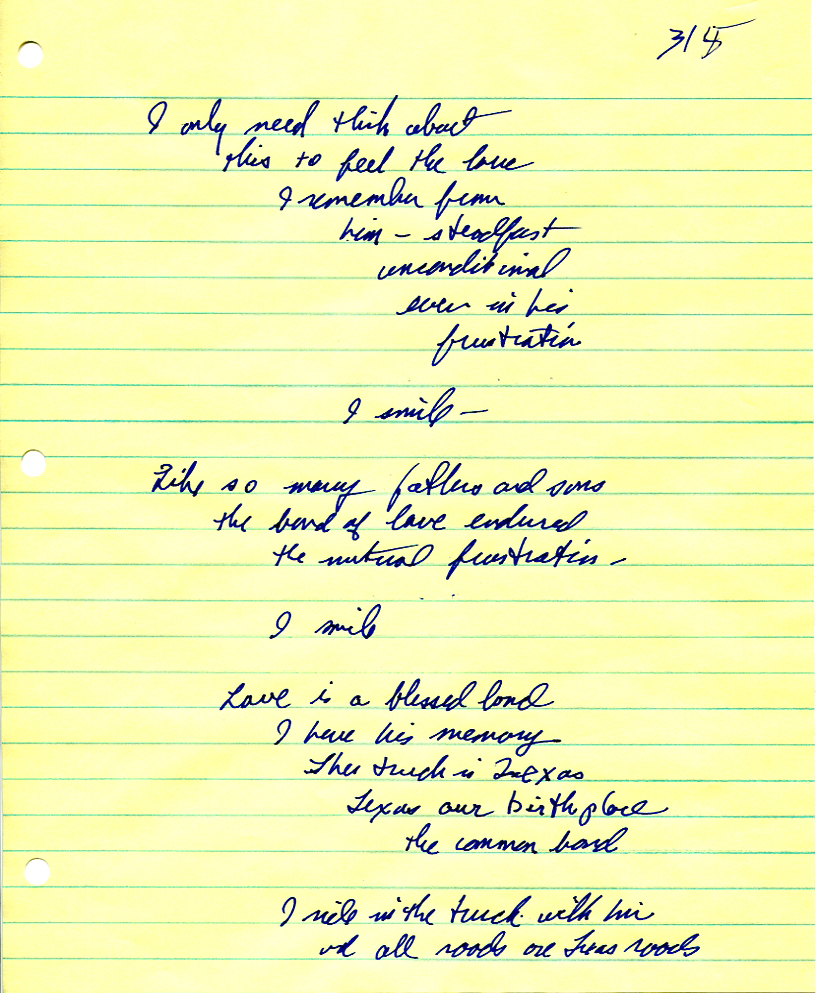 3/5
I only need think about
this to feel the love
I remember from
him – steadfast
unconditional
even in his
frustration
I smile –
Like so many fathers and sons
the bond of love endured
the mutual frustration –
I smile
Love is a blessed bond
I have his memory
truck is Texas
Texas our birthplace
the common bond
I ride in the truck with him
and all roads are Texas roads